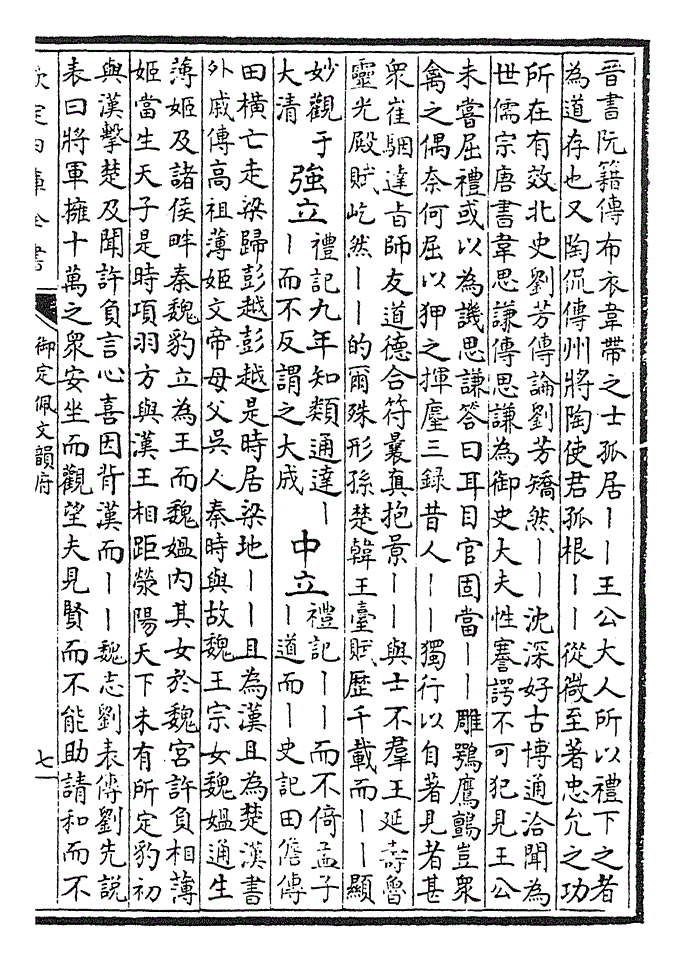 晉書阮籍傳布衣韋帶之士孤居丨丨王公大人所以禮下之者
為道存也又陶侃傳州將陶使君孤根丨丨從微至著忠允之功
所在有效北史劉芳傳論劉芳矯然丨丨沈深好古博通洽聞為
世儒宗唐書韋思謙傳思謙為御史大夫性謇諤不可犯見王公
未嘗屈禮或以為譏思謙答曰耳目官固當丨丨雕鶚鷹鸇豈衆
禽之偶奈何屈以狎之揮麈三錄昔人丨丨獨行以自著見者甚
衆崔駰達旨師友道德合符曩真抱景丨丨與士不羣王延壽魯
靈光殿賦屹然丨丨的爾殊形孫楚韓王臺賦歷千載而丨丨顯
妙觀于
大清
強立
禮記九年知類通達丨
丨而不反謂之大成
中立
禮記丨丨而不倚孟子
丨道而丨史記田儋傳
田橫亡走梁歸彭越彭越是時居梁地丨丨且為漢且為楚漢書
外戚傳高祖薄姬文帝母父吳人秦時與故魏王宗女魏媼通生
薄姬及諸侯畔秦魏豹立為王而魏媼内其女於魏宮許負相薄
姬當生天子是時項羽方與漢王相距滎陽天下未有所定豹初
與漢擊楚及聞許負言心喜因背漢而丨丨魏志劉表傳劉先說
表曰將軍擁十萬之衆安坐而觀望夫見賢而不能助請和而不
欽定四庫全書
御定佩文韻府
七